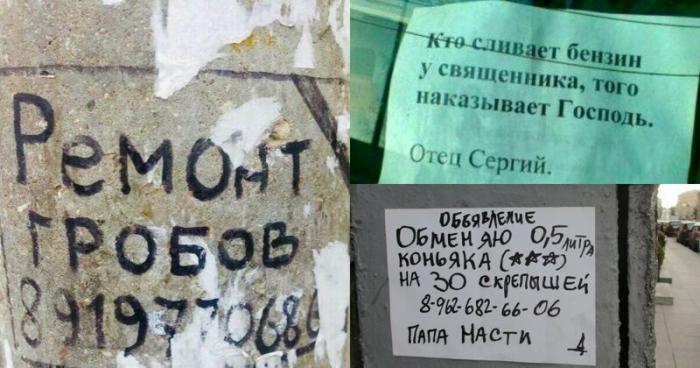 Ремонт
гробов
89197706866
Кто сливает бензин
у священника, того
наказывает Господь.
Отец Сергий.
ОБЪЯВЛЕНИЕ
ОБМЕНЯЮ 0,5 ЛИТРА
КОНЬЯКА (★★★)
НА 30 СКРЕПЫШЕЙ
8-962-682-66-06
ПАПА НАСТИ